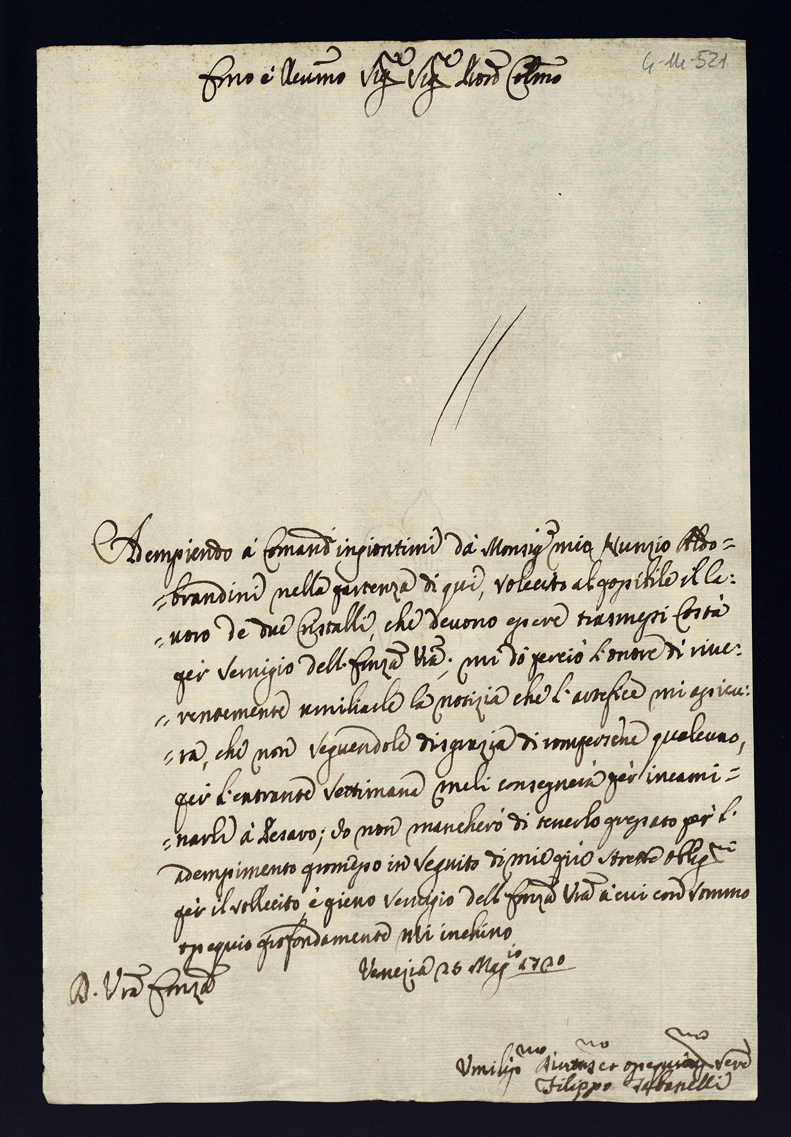 G-M-521
Emo e Reumo Sigre Sigre Prone Colmo
Adempiendo á Comandi ingiontimi dà Monsigre mio Nunzio Aldo=
=brandini nella partenza di quì, sollecito al possibile il la:
=uoro de due Cristalli, che deuono essere trasmessi Costà
per seruigio dell. Emza Vra; mi dò perciò l'onore di riue:
=rentemente umiliarle la notizia che l'artefice mi assicu:
=ra, che non seguendole disgrazia di rompersene qualcuno,
per l'entrante settimana meli consegnerà per incami=
=narli à Pesaro; Io non mancherò di tenerlo pressato per l'
adempimento promesso in seguito di mie più strette
per il sollecito è pieno seruigio dell. Emza Vra à cui con sommo
ossequio profondamente mi inchino
Venezia 25 Magio 1720
D. Vra Emza
Umilissmo et Sere
Filippo